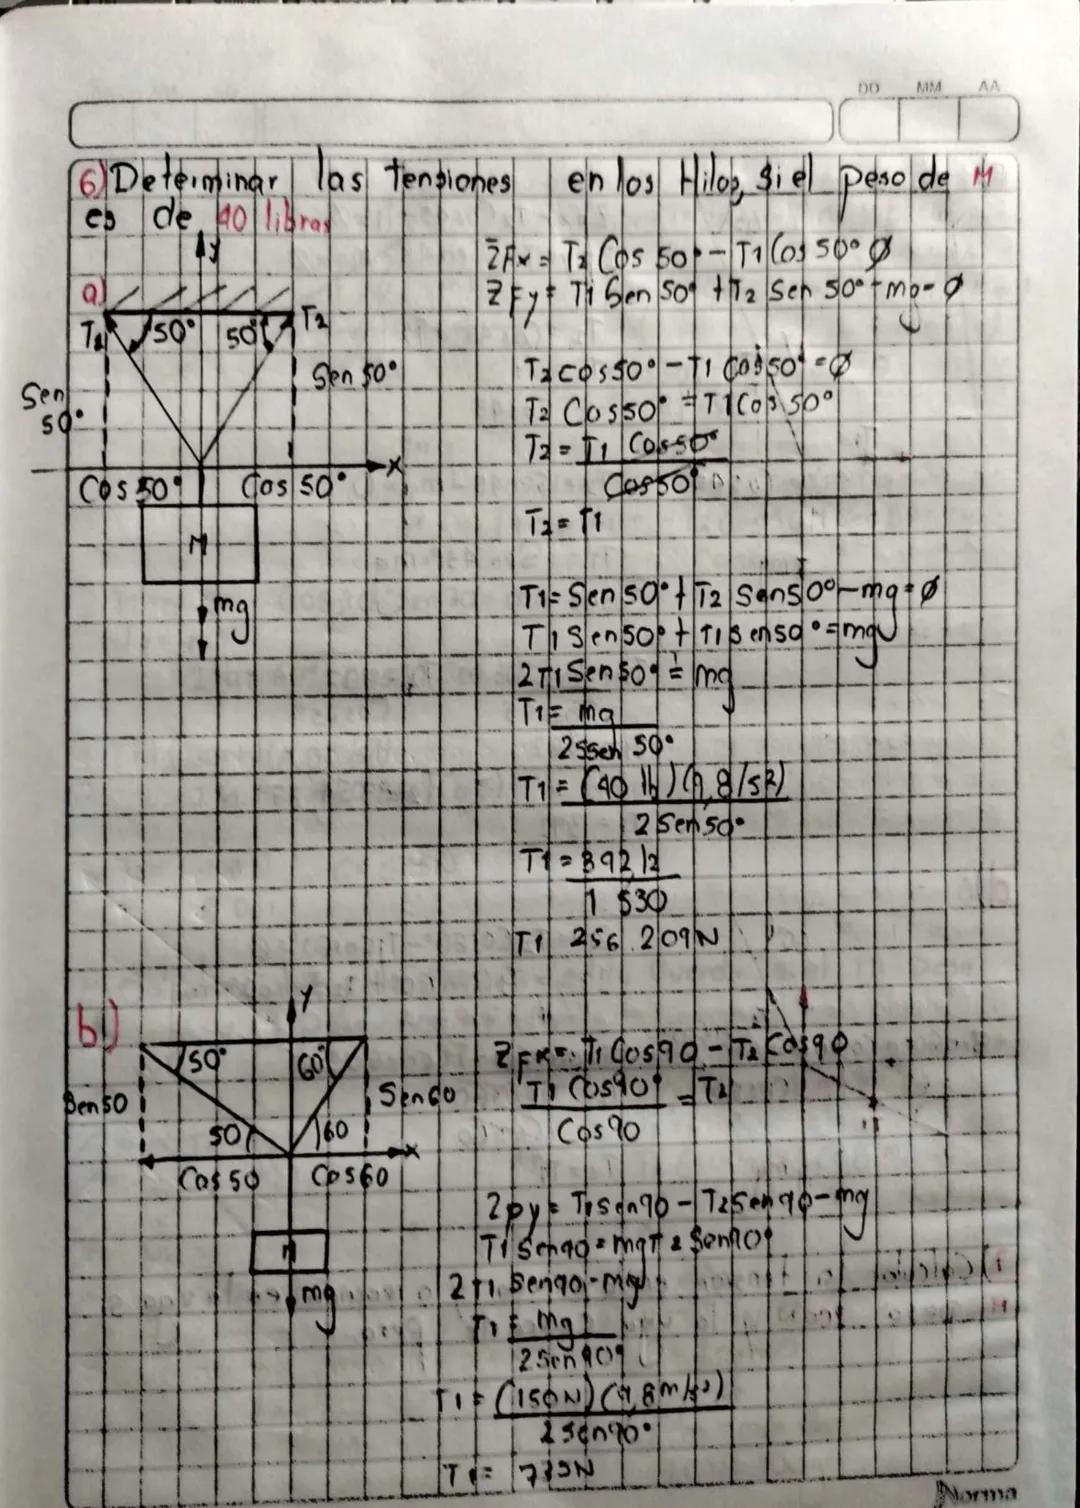 DD MM AA
6) Determinar las tensiones en los Hilos, si el peso de M
es de 40 libras
y
a)
T1 50° 50° T2
Sen 50°
Sen 50°
x
Cos 50° Cos 50°
M
mg
ΣFx = T2 Cos 50° - T1 Cos 50° Ø
ΣFy = T1 Sen 50° + T2 Sen 50° - mg = Ø
T2 cos 50° - T1 Cos 50° = Ø
T2 Cos 50° = T1 Cos 50°
T2 = T1 Cos 50°
Cos 50°
T2 = T1
T1 = Sen 50° + T2 Sen 50° - mg = Ø
T1 Sen 50° + T1 Sen 50° = mg
2T1 Sen 50° = mg
T1 = mg
2 Sen 50°
T1 = (40 lb) (9,8/s2)
2 Sen 50°
T1 = 392
1 530
T1 256.209N
b)
y
50° 60°
Sen 50
Sen 60
50 60
x
Cos 50 Cos 60
M
mg
ΣFx = T1 Cos 90 - T2 Cos 90
T1 Cos 90° = T2
Cos 90
Σpy = T1 sen 90 - T2 Sen 90 - mg
T1 Sen 90 = mg 2 Sen 90°
2 T1 Sen 90 - mg
T1 = mg
2 Sen 90°
T1 = (150N) (9,8 m/s2)
2 Sen 90°
T1 = 735N
Norma